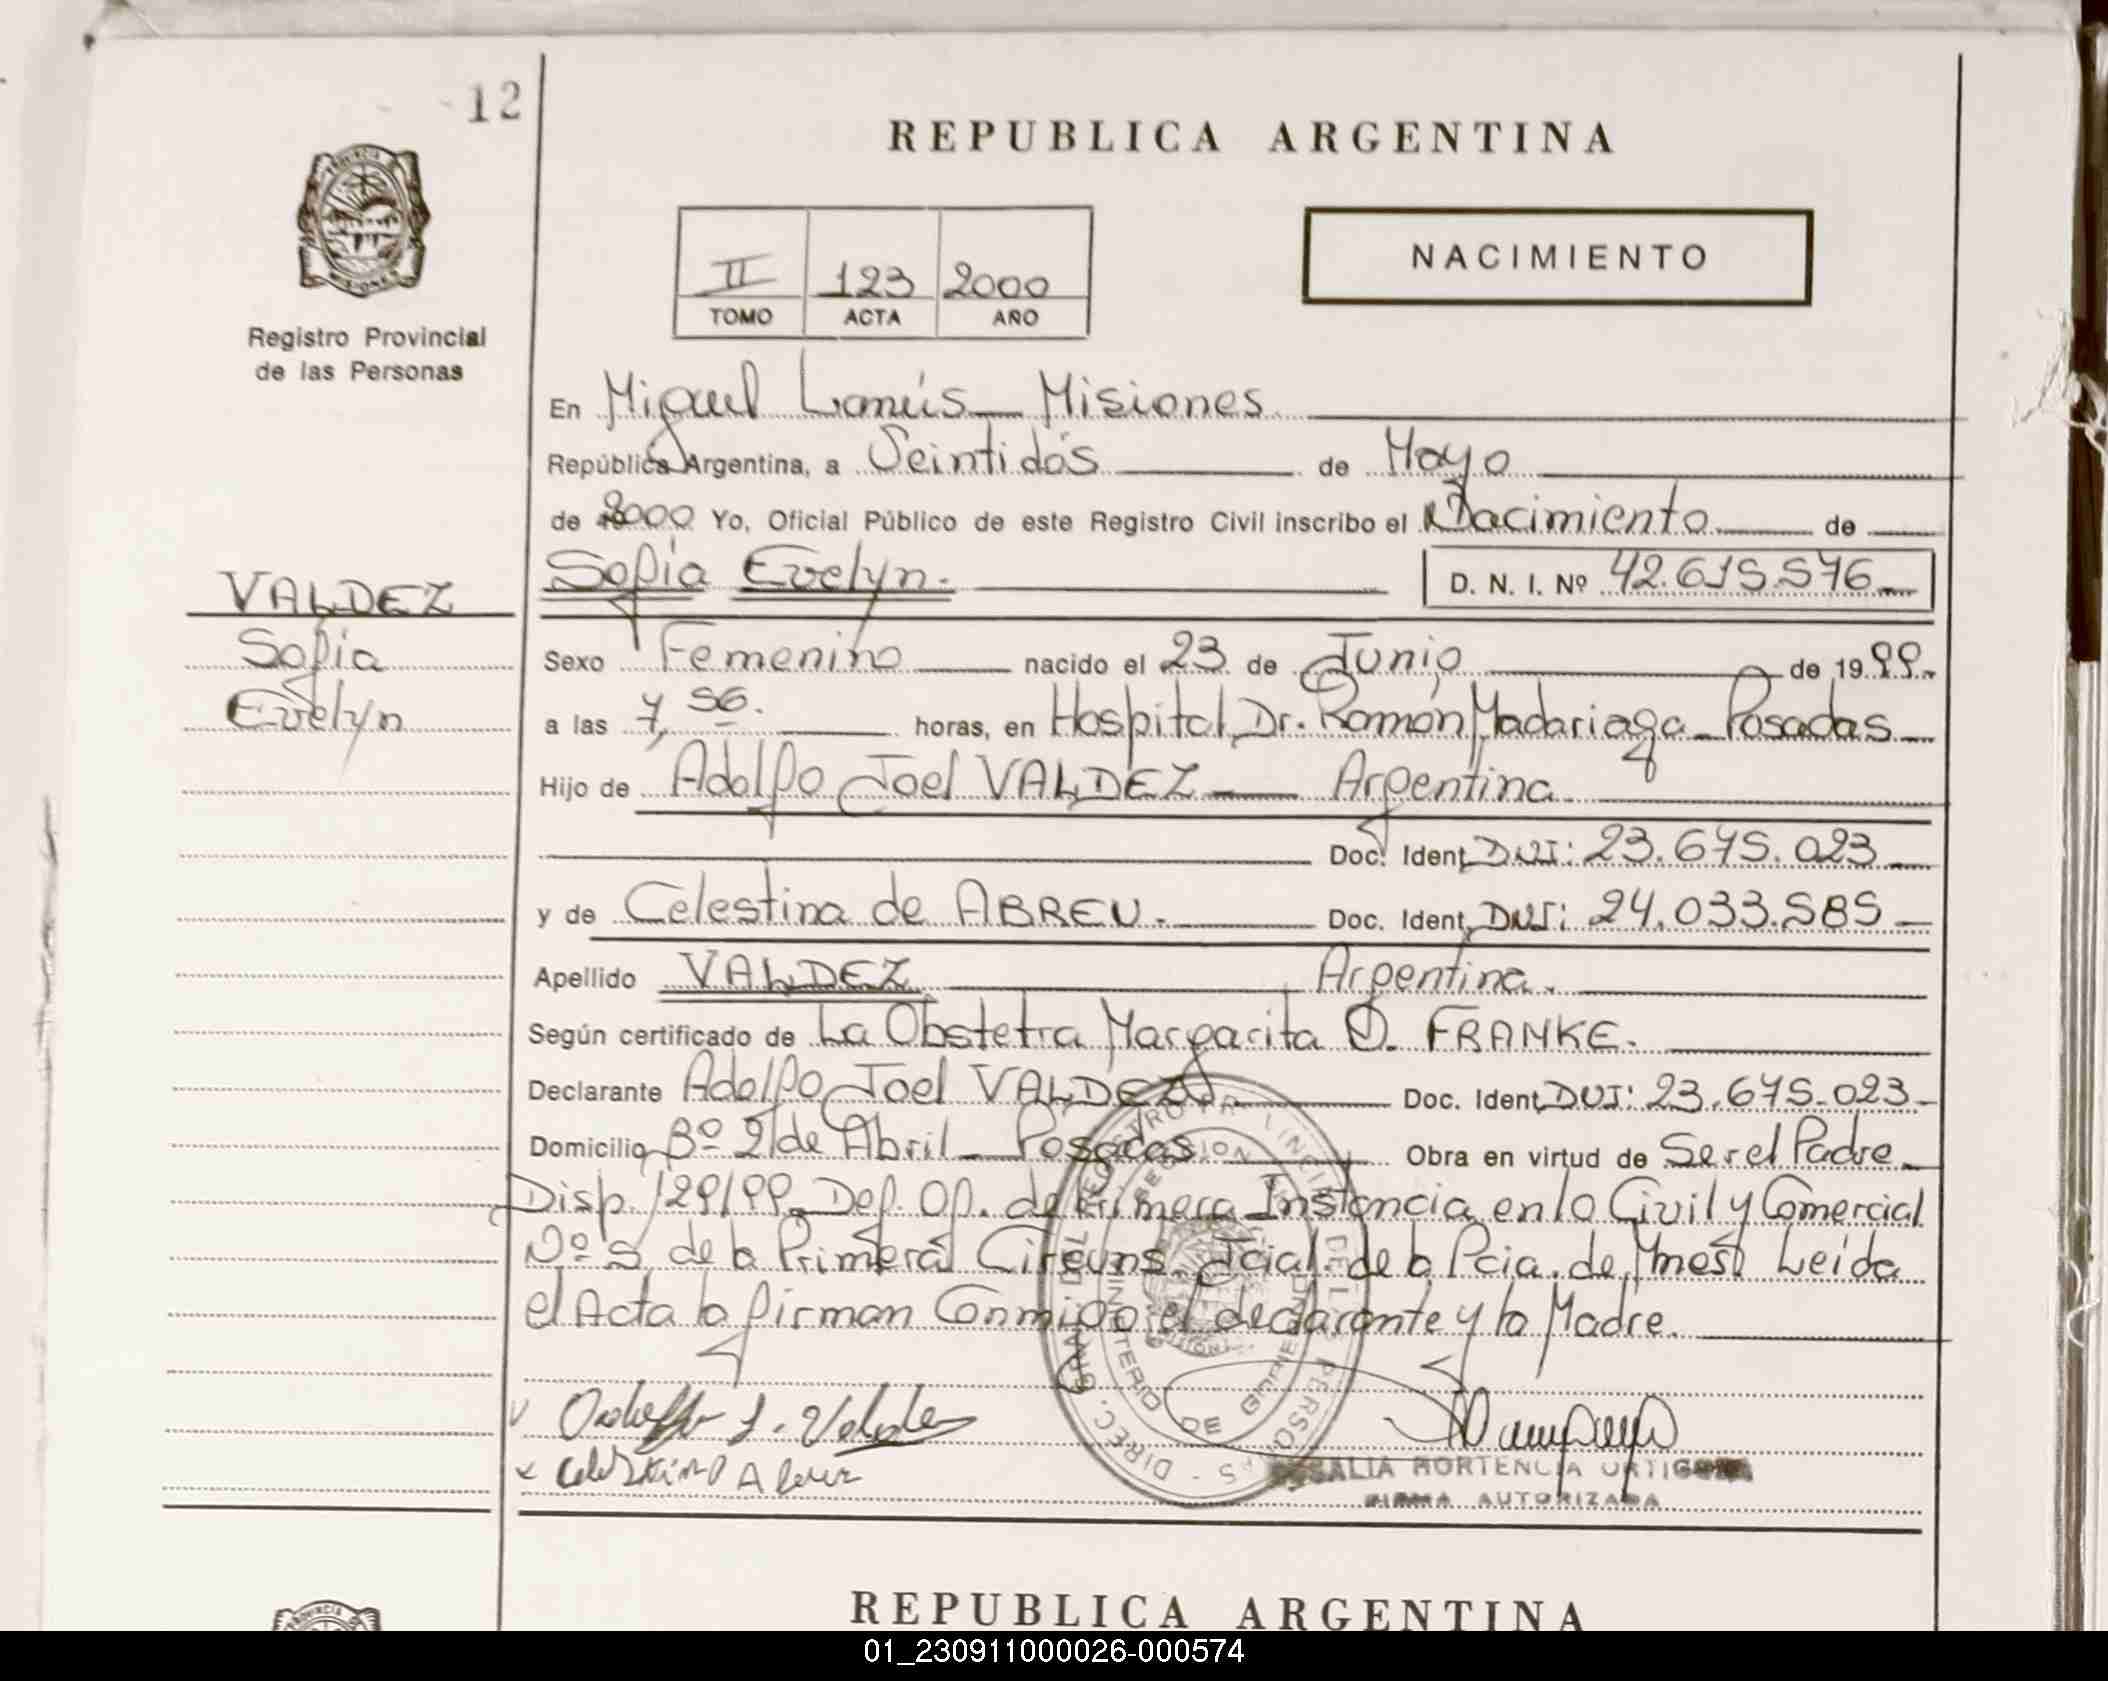 12
REPUBLICA ARGENTINA
II 123 2000
TOMO ACTA AÑO
NACIMIENTO
Registro Provincial
de las Personas
En Miguel Lanús - Misiones
República Argentina, a Veintidós de Mayo
de 2000 Yo, Oficial Público de este Registro Civil inscribo el Nacimiento de
VALDEZ
Sofia
Evelyn
Sofia Evelyn. D. N. I. Nº 42.615.576
Sexo Femenino nacido el 23 de Junio de 1999
a las 7,56. horas, en Hospital Dr. Ramón Madariaga - Posadas
Hijo de Adolfo Joel VALDEZ Argentina
Doc. Ident. DNI: 23.675.023
y de Celestina de ABREU. Doc. Ident. DNI: 24.033.585
Apellido VALDEZ Argentina.
Según certificado de La Obstetra Margarita O. FRANKE.
Declarante Adolfo Joel VALDEZ Doc. Ident. DNI: 23.675.023
Domicilio Bº 2 de Abril - Posadas Obra en virtud de Ser el Padre
Disp. 129/99 Def. Of. de Primera Instancia en lo Civil y Comercial
Nº 5 de la Primera Circuns. Jcial. de la Pcia. de Mnes. Leída
el Acta la firman Conmigo el declarante y la Madre.
DIREC. GRAL. DEL REGISTRO PROVINCIAL DE LAS PERSONAS
MINISTERIO DE GOBIERNO
ROSALIA HORTENCIA
FIRMA AUTORIZADA
REPUBLICA ARGENTINA
01_230911000026-000574